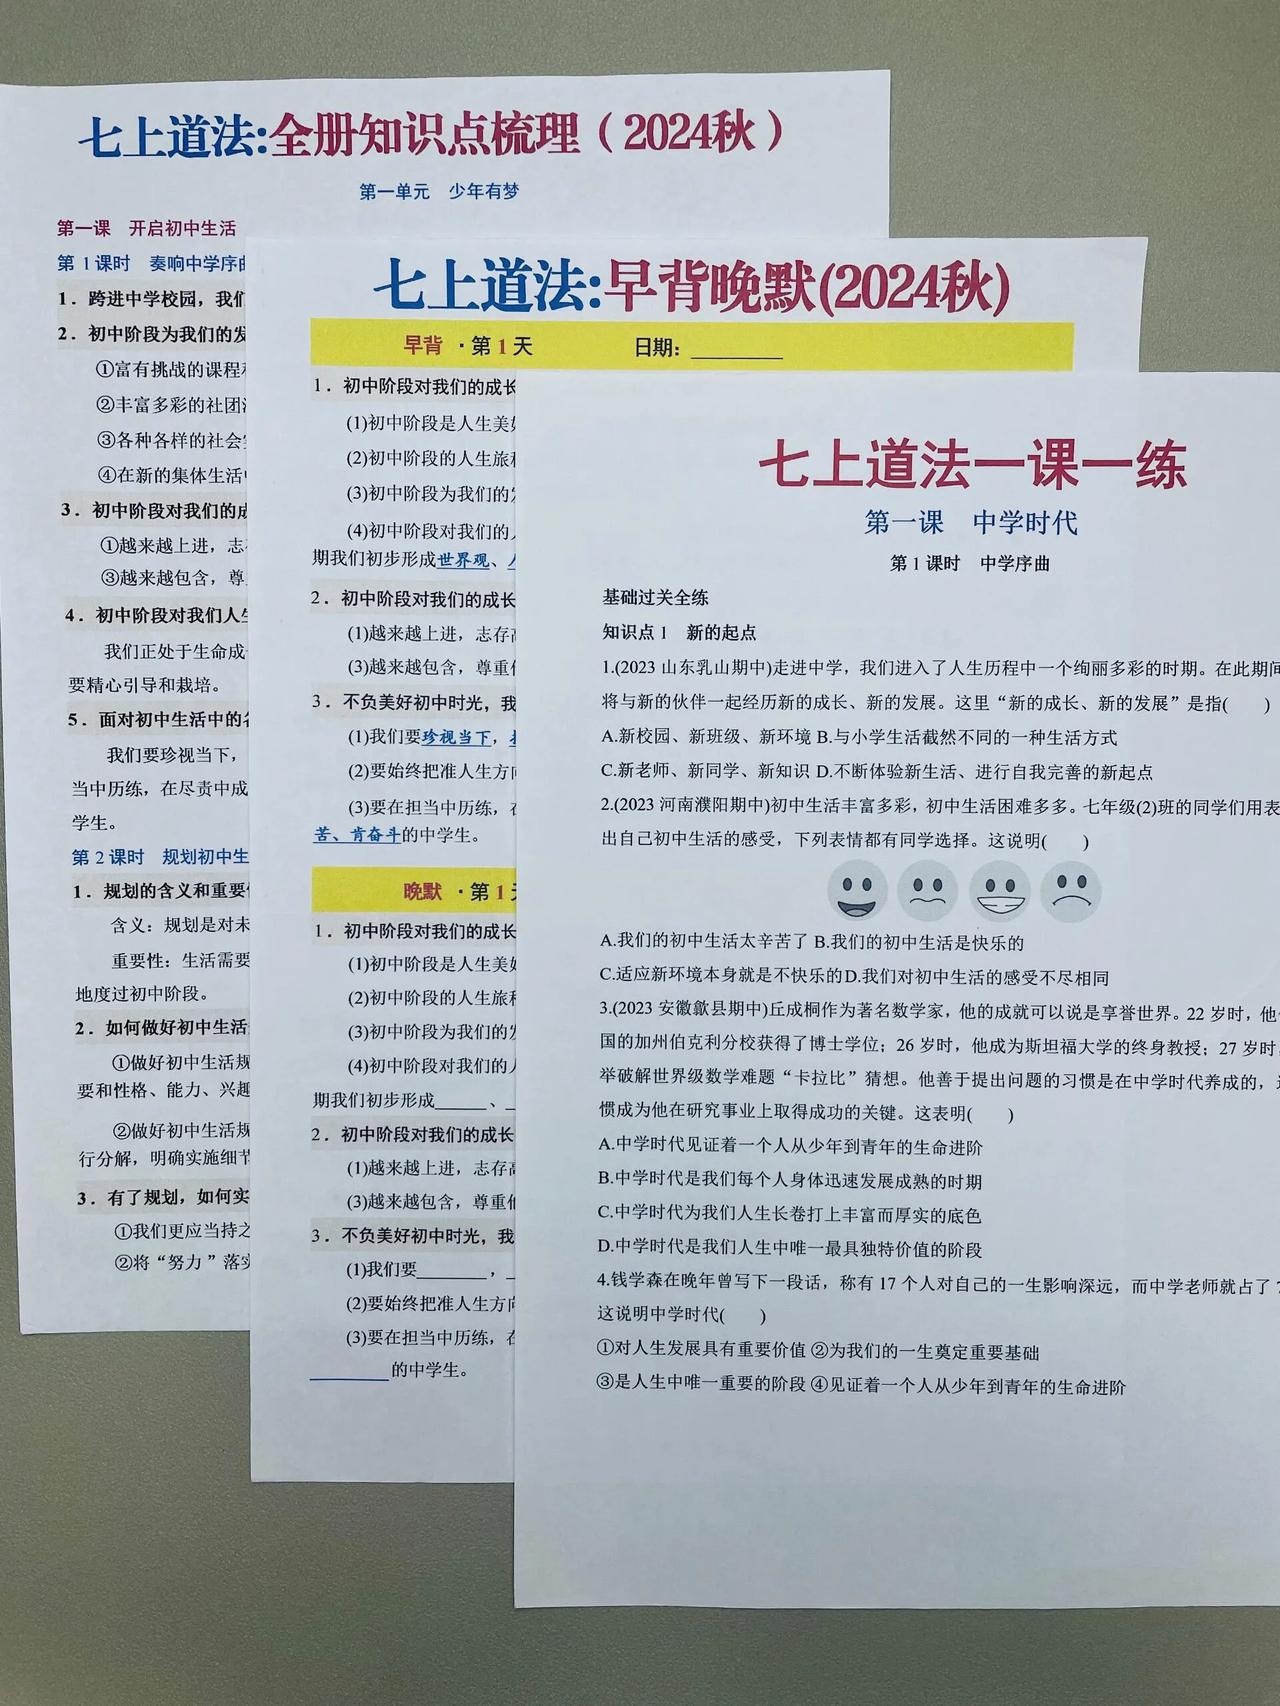 七上道法:全册知识点梳理（2024秋）
第一单元 少年有梦
第一课 开启初中生活
第 1 课时 奏响中学序曲
1．跨进中学校园，我们
2．初中阶段为我们的发
①富有挑战的课程
②丰富多彩的社团
③各种各样的社会
④在新的集体生活
3．初中阶段对我们的成
①越来越上进，志
②越来越包含，尊
4．初中阶段对我们人生
我们正处于生命成
要精心引导和栽培。
5．面对初中生活中的各
我们要珍视当下，
当中历练，在尽责中成
学生。
第 2 课时 规划初中生
1．规划的含义和重要
含义：规划是对未
重要性：生活需要
地度过初中阶段。
2．如何做好初中生活
①做好初中生活规
要和性格、能力、兴趣
②做好初中生活规
行分解，明确实施细节
3．有了规划，如何实
①我们更应当持之
②将“努力”落实
七上道法:早背晚默(2024秋)
早背 ·第 1 天 日期：________
1．初中阶段对我们的成长
(1)初中阶段是人生美好
(2)初中阶段的人生旅程
(3)初中阶段为我们的发
(4)初中阶段对我们的人
期我们初步形成世界观、人
2．初中阶段对我们的成长
(1)越来越上进，志存高
(3)越来越包含，尊重他
3．不负美好初中时光，我
(1)我们要珍视当下，
(2)要始终把准人生方向
(3)要在担当中历练，在
苦、肯奋斗的中学生。
晚默 ·第 1 天
1．初中阶段对我们的成长
(1)初中阶段是人生美好
(2)初中阶段的人生旅程
(3)初中阶段为我们的发
(4)初中阶段对我们的人
期我们初步形成______、
2．初中阶段对我们的成长
(1)越来越上进，志存高
(3)越来越包含，尊重他
3．不负美好初中时光，我
(1)我们要________，
(2)要始终把准人生方向
(3)要在担当中历练，在
________的中学生。
七上道法一课一练
第一课 中学时代
第 1 课时 中学序曲
基础过关全练
知识点 1 新的起点
1.(2023 山东乳山期中)走进中学，我们进入了人生历程中一个绚丽多彩的时期。在此期间
将与新的伙伴一起经历新的成长、新的发展。这里“新的成长、新的发展”是指( )
A.新校园、新班级、新环境 B.与小学生活截然不同的一种生活方式
C.新老师、新同学、新知识 D.不断体验新生活、进行自我完善的新起点
2.(2023 河南濮阳期中)初中生活丰富多彩，初中生活困难多多。七年级(2)班的同学们用表
出自己初中生活的感受，下列表情都有同学选择。这说明( )
A.我们的初中生活太辛苦了 B.我们的初中生活是快乐的
C.适应新环境本身就是不快乐的D.我们对初中生活的感受不尽相同
3.(2023 安徽歙县期中)丘成桐作为著名数学家，他的成就可以说是享誉世界。22 岁时，他
国的加州伯克利分校获得了博士学位；26 岁时，他成为斯坦福大学的终身教授；27 岁时，
举破解世界级数学难题“卡拉比”猜想。他善于提出问题的习惯是在中学时代养成的，
惯成为他在研究事业上取得成功的关键。这表明( )
A.中学时代见证着一个人从少年到青年的生命进阶
B.中学时代是我们每个人身体迅速发展成熟的时期
C.中学时代为我们人生长卷打上丰富而厚实的底色
D.中学时代是我们人生中唯一最具独特价值的阶段
4.钱学森在晚年曾写下一段话，称有 17 个人对自己的一生影响深远，而中学老师就占了
这说明中学时代( )
①对人生发展具有重要价值 ②为我们的一生奠定重要基础
③是人生中唯一重要的阶段 ④见证着一个人从少年到青年的生命进阶